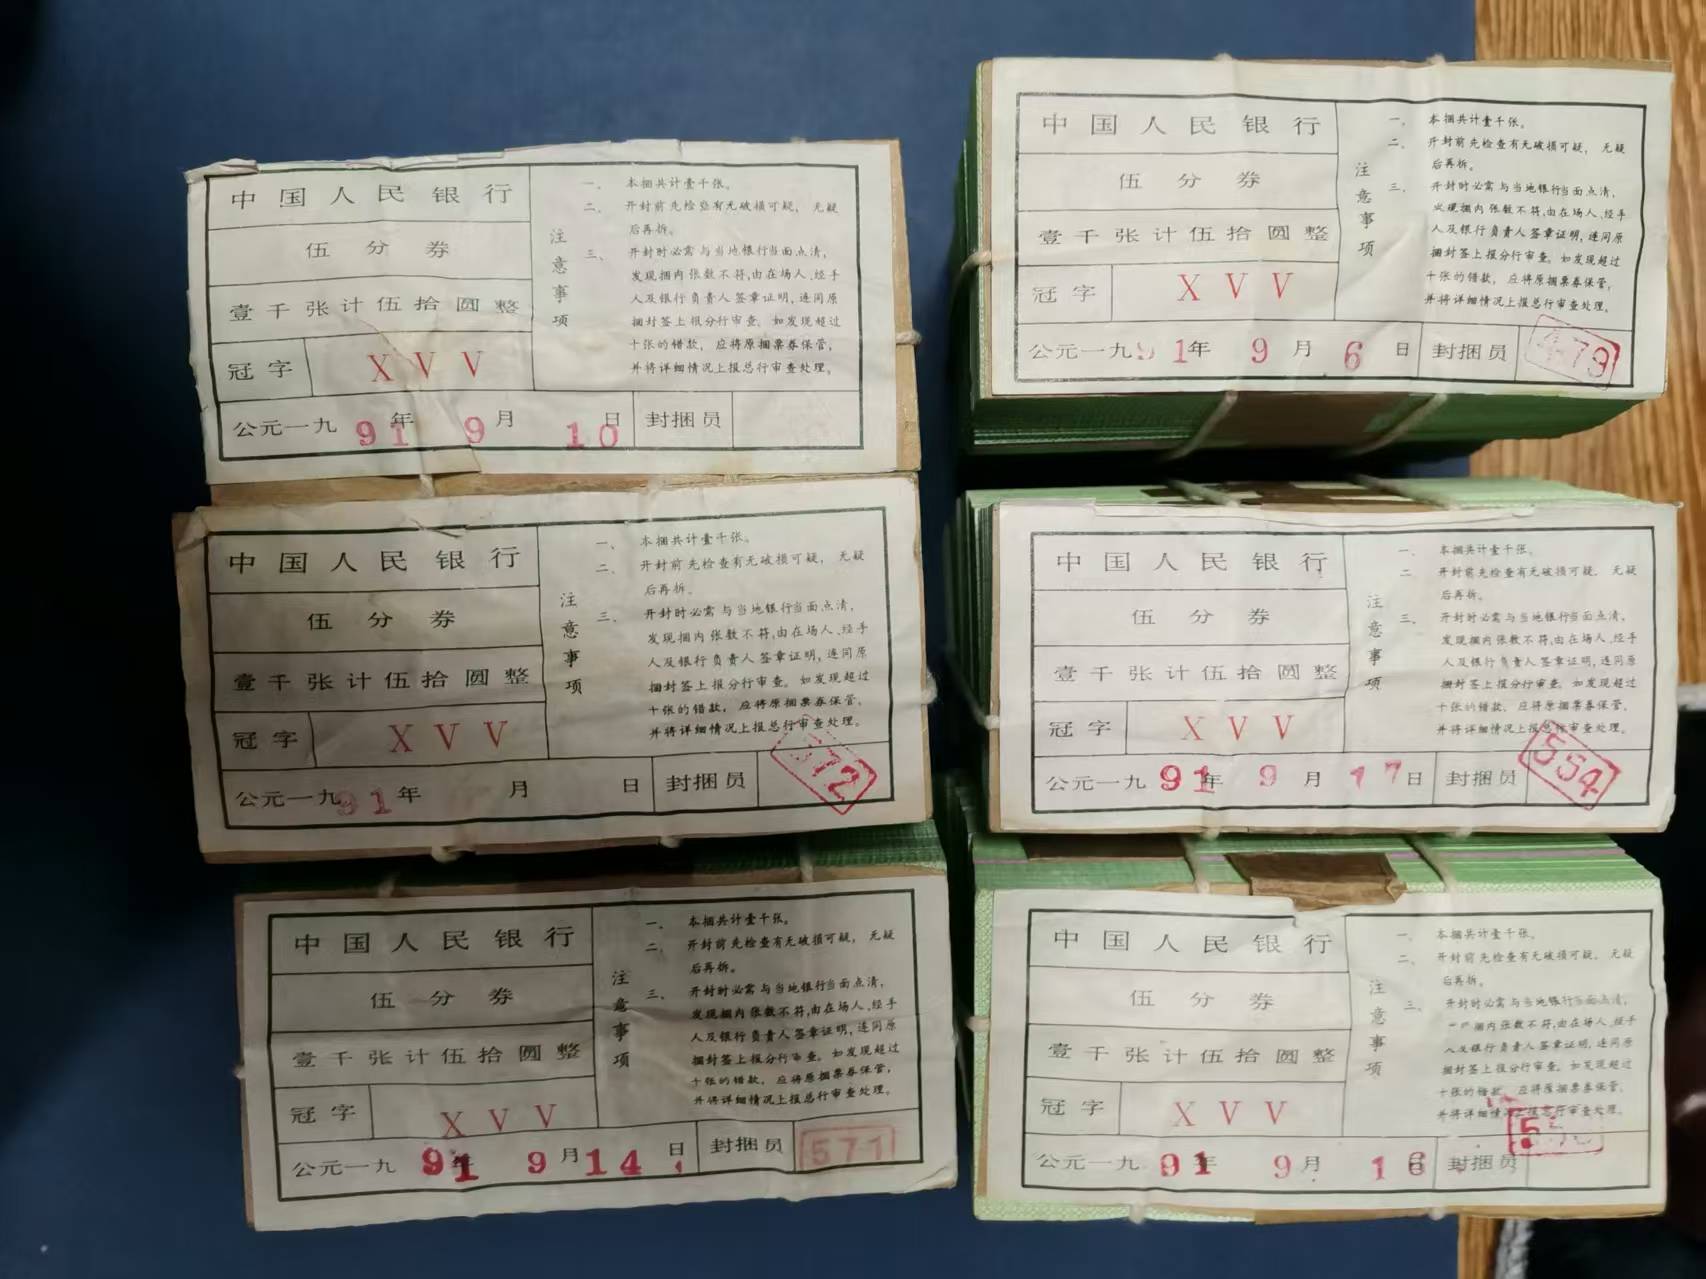 中国人民银行
伍分券
壹千张计伍拾圆整
冠字 XVV
公元一九91年9月10日 封捆员
注意事项
一、本捆共计壹千张。
二、开封前先检查有无破损可疑，无疑
后再拆。
三、开封时必需与当地银行当面点清，
发现捆内张数不符,由在场人、经手
人及银行负责人签章证明,连同原
捆封签上报分行审查。如发现超过
十张的错款，应将原捆票券保管，
并将详细情况上报总行审查处理。
中国人民银行
伍分券
壹千张计伍拾圆整
冠字 XVV
公元一九91年 月 日 封捆员
注意事项
一、本捆共计壹千张。
二、开封前先检查有无破损可疑，无疑
后再拆。
三、开封时必需与当地银行当面点清，
发现捆内张数不符,由在场人、经手
人及银行负责人签章证明,连同原
捆封签上报分行审查。如发现超过
十张的错款，应将原捆票券保管，
并将详细情况上报总行审查处理。
中国人民银行
伍分券
壹千张计伍拾圆整
冠字 XVV
公元一九91年9月14日 封捆员 571
注意事项
一、本捆共计壹千张。
二、开封前先检查有无破损可疑，无疑
后再拆。
三、开封时必需与当地银行当面点清，
发现捆内张数不符,由在场人、经手
人及银行负责人签章证明,连同原
捆封签上报分行审查。如发现超过
十张的错款，应将原捆票券保管，
并将详细情况上报总行审查处理。
中国人民银行
伍分券
壹千张计伍拾圆整
冠字 XVV
公元一九91年9月6日 封捆员
注意事项
一、本捆共计壹千张。
二、开封前先检查有无破损可疑，无疑
后再拆。
三、开封时必需与当地银行当面点清，
发现捆内张数不符,由在场人、经手
人及银行负责人签章证明,连同原
捆封签上报审查。如发现超过
十张的错款，应将原捆票券保管，
并将详细情况上报总行审查处理。
中国人民银行
伍分券
壹千张计伍拾圆整
冠字 XVV
公元一九91年9月17日 封捆员 554
注意事项
一、本捆共计壹千张。
二 开封前先检查有无破损可疑，无疑
后再拆。
三、开封时必需与当地银行当面点清，
发现捆内张数不符,由在场人、经手
人及银行负责人签章证明,连同原
捆封签上报分行审查。如发现超过
十张的错款，应将原捆票券保管，
并将详细情况上报总行审查处理。
中国人民银行
伍分券
壹千张计伍拾圆整
冠字 XVV
公元一九91年9月16日 封捆员
注意事项
一、本捆共计壹千张。
二、开封前先检查有无破损可疑，无疑
后再拆。
三、开封时必需与当地银行当面点清，
捆内张数不符,由在场人、经手
人及银行负责人签章证明,连同原
捆封签上报分行审查。如发现超过
十张的错款，应将原捆票券保管，
并将详细情况上报总行审查处理。